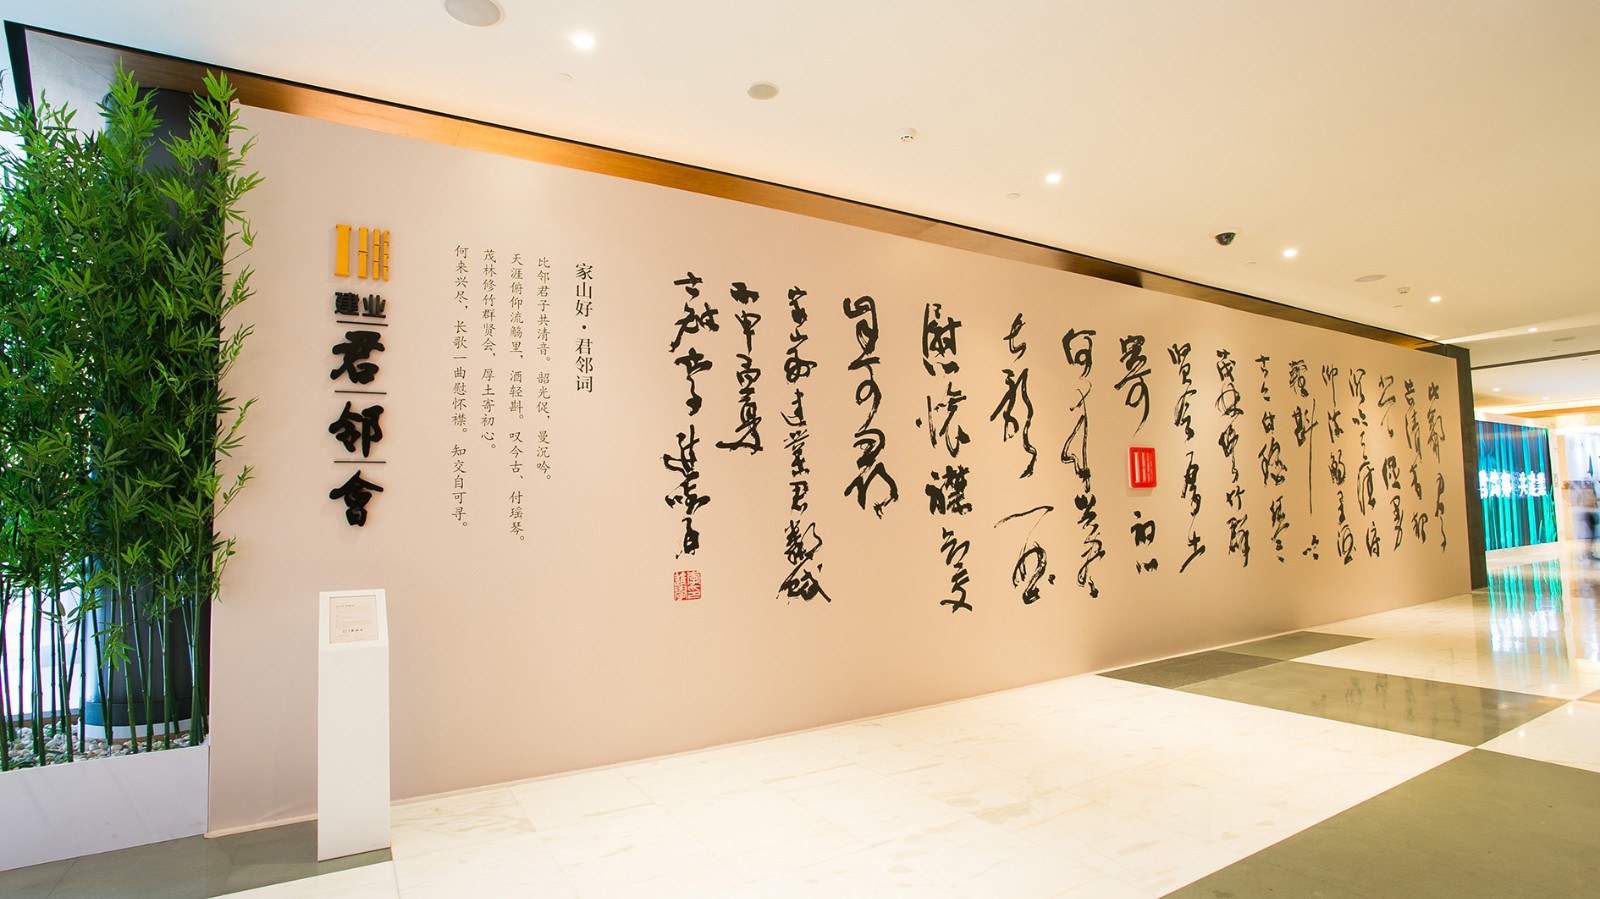 建业
君
邻
會
家山好·君邻词
比邻君子共清音。韶光促，曼沉吟。
天涯俯仰流觞里，酒轻斟。叹今古、付瑶琴。
茂林修竹群贤会，厚土寄初心。
何来兴尽，长歌一曲慰怀襟。知交自可寻。
比鄰君子
共清音韶
光促曼
沉吟天涯俯
仰流觴里酒
輕斟嘆
今古付瑶琴
茂林修竹群
賢會厚土
寄初心
何来興盡
长歌一曲
慰懷襟知交
自可尋
家山好建業君鄰賦